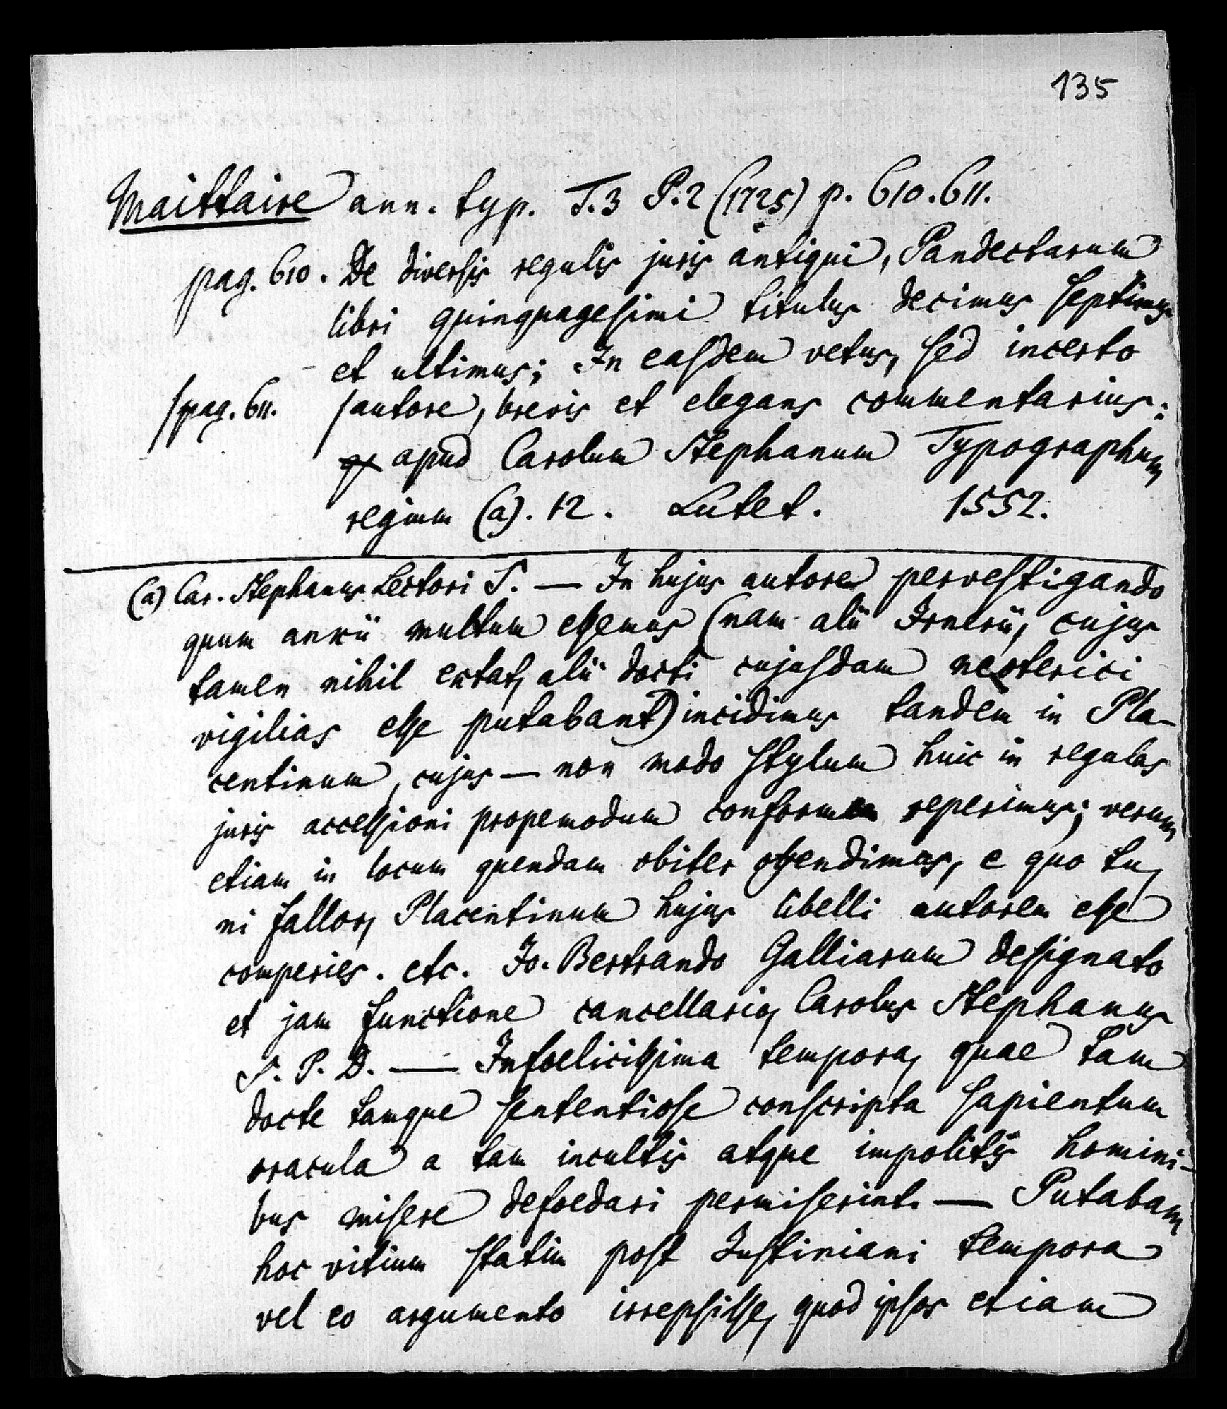 135
Maittaire ann. typ. T.3 P.2 (1725) p. 610.611.
pag. 610. De diversis regulis juris antiqui, Pandectarum
libri quinquagesimi titulus decimus septimus
et ultimus; In easdem vetus, sed incerto
/pag. 611. /autore, brevis et elegans commentarius:
apud Carolum Stephanum Typographum
regium (a). 12. Lutet. 1552.
(a) Car. Stephanus Lectori S. — In hujus autore pervestigando
quum anxii multum essemus (nam alii Irnerii, cujus
tamen nihil extat, alii docti cujusdam neoterici
vigilias esse putabant) incidimus tandem in Pla-
centinum, cujus — non modo stylum huic in regulas
juris accessioni propemodum conformem reperimus; verum
etiam in locum quendam obiter offendimus, e quo tu,
ni fallor, Placentinum hujus libelli autorem esse
comperies. etc. Jo. Bertrando Galliarum designato
et jam functione cancellario, Carolus Stephanus
S. P. D. — Infoelicissima tempora, quae tam
docte tamque sententiose conscripta sapientum
oracula a tam incultis atque impolitis homini-
bus misere defoedari permiserint. — Putabam
hoc vitium statim post Justiniani tempora
vel eo argumento irrepsisse, quod ipsos etiam